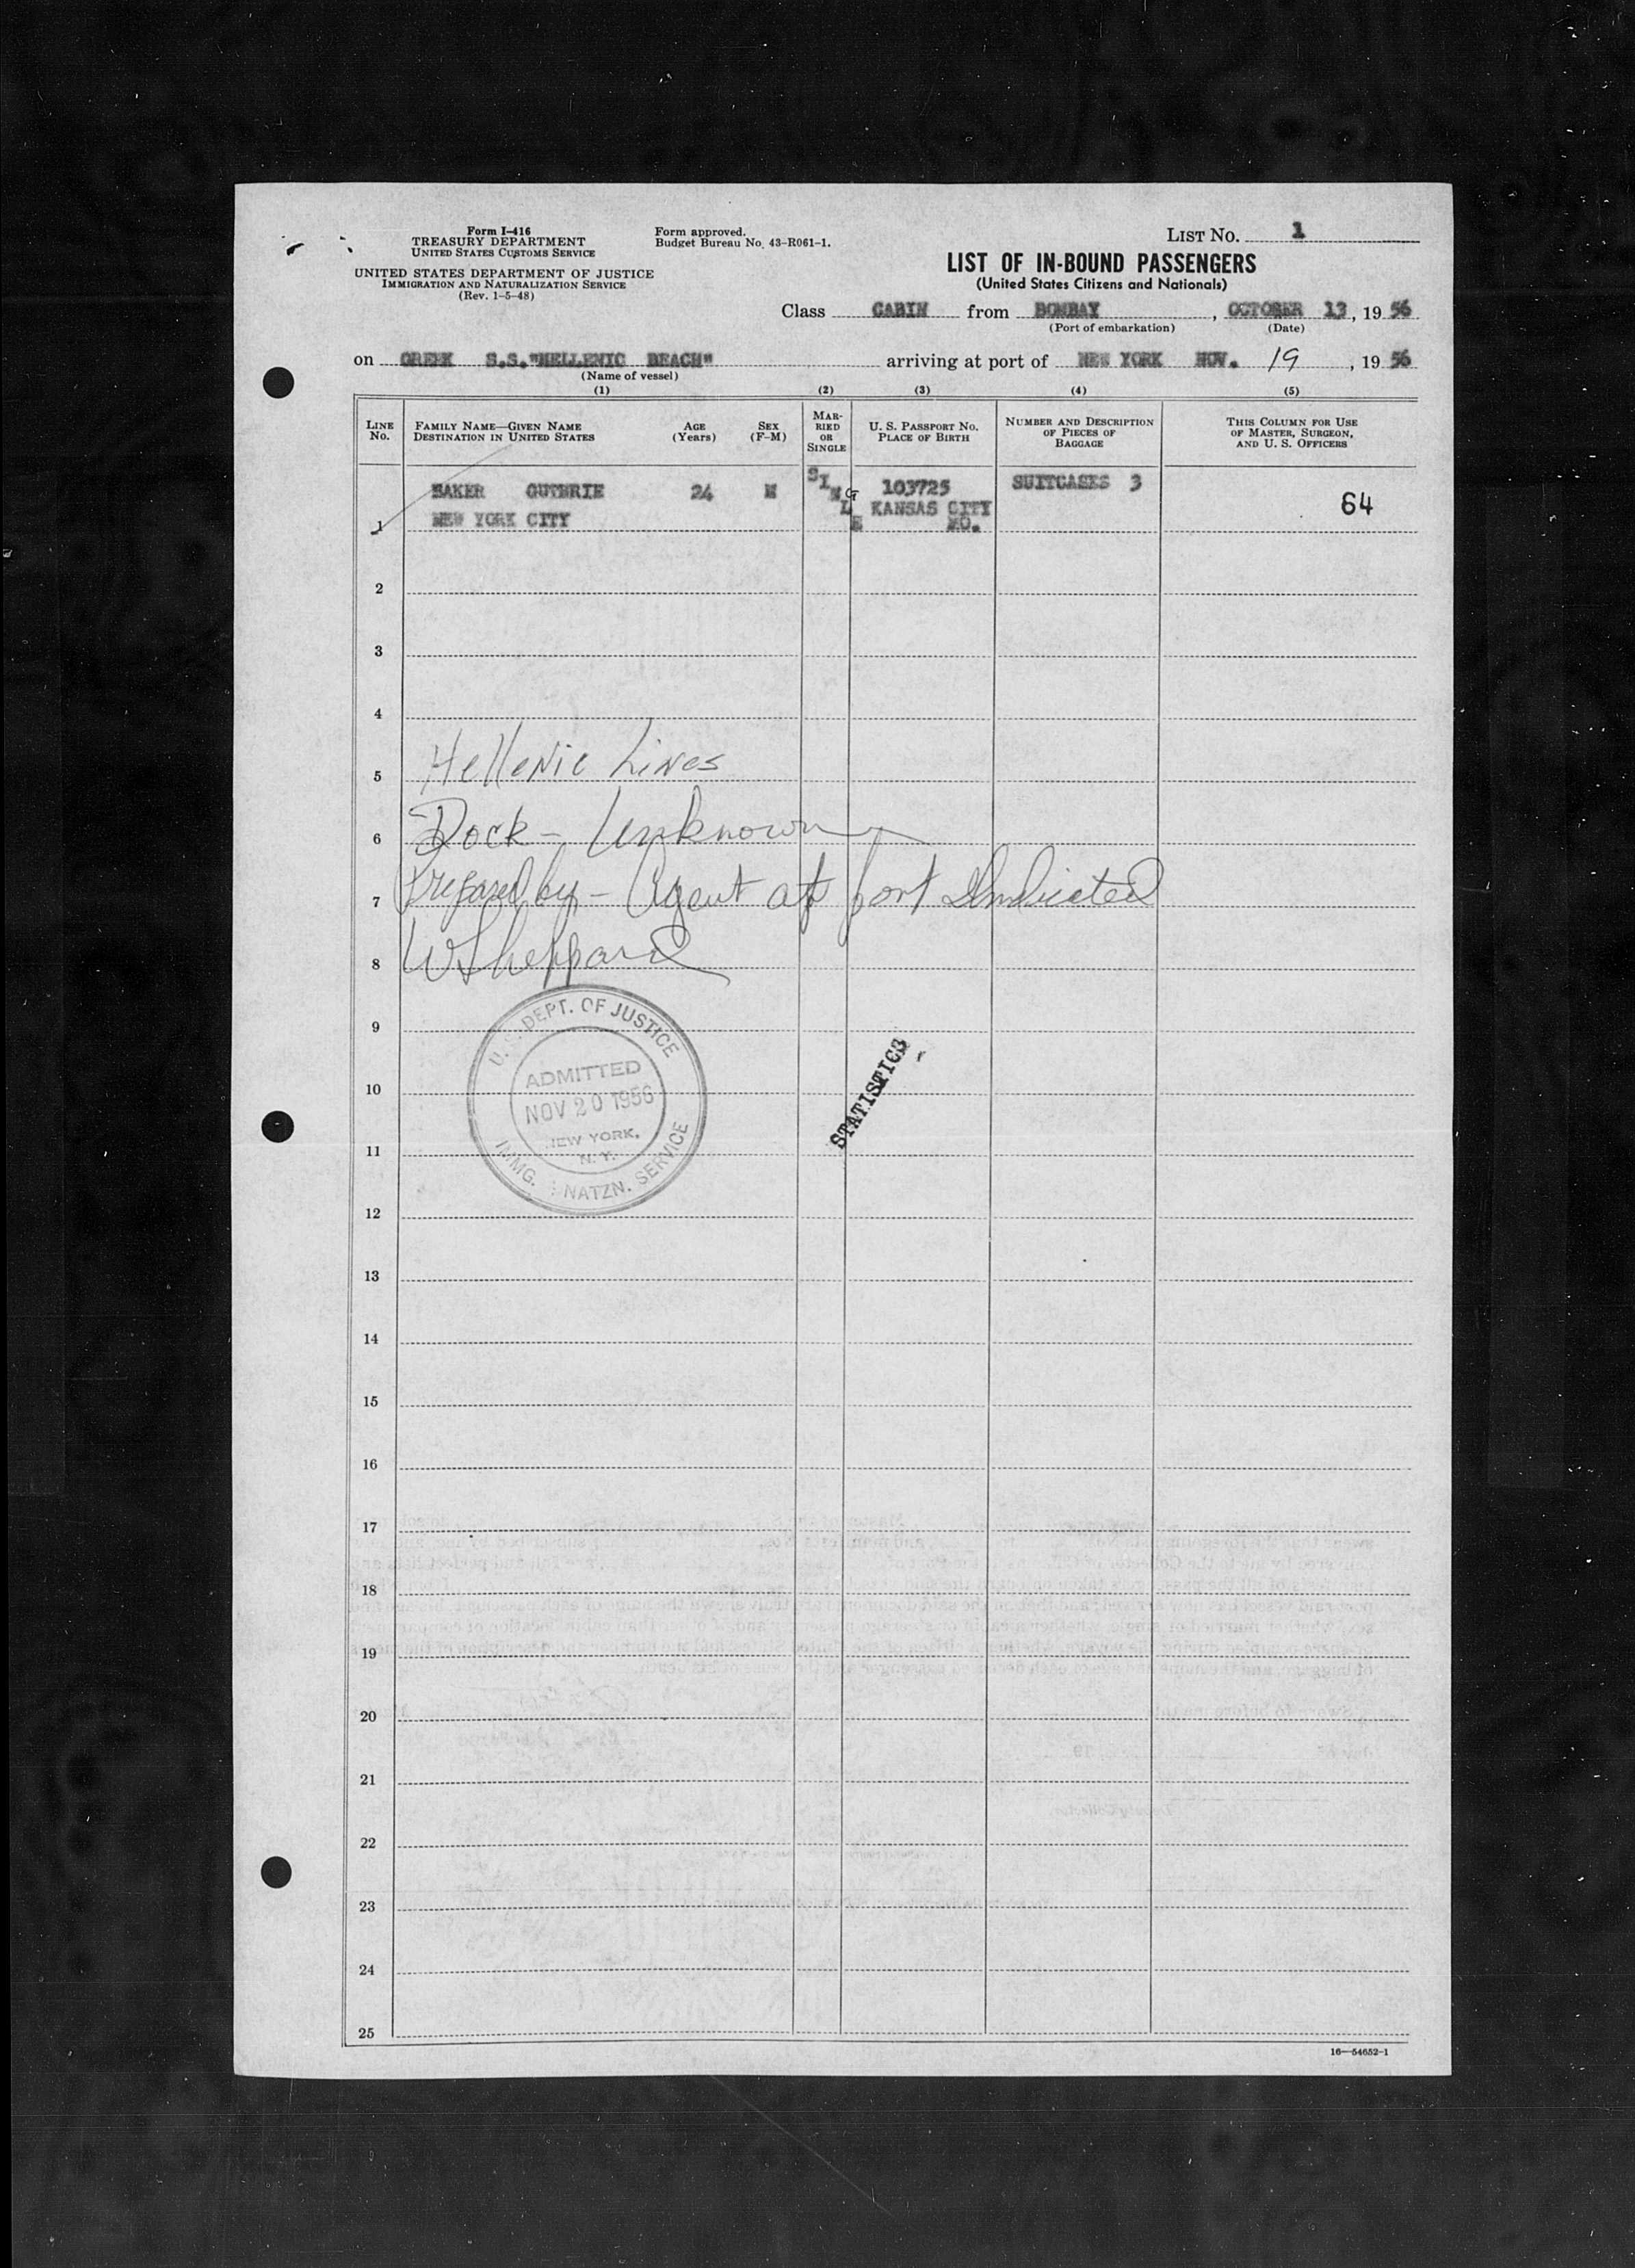 Form I-416
TREASURY DEPARTMENT
UNITED STATES CUSTOMS SERVICE
UNITED STATES DEPARTMENT OF JUSTICE
IMMIGRATION AND NATURALIZATION SERVICE
(Rev. 1-5-48)
Form approved.
Budget Bureau No. 43-R061-1.
LIST No. 1
LIST OF IN-BOUND PASSENGERS
(United States Citizens and Nationals)
Class CABIN from BOMBAY, OCTOBER 13, 1956
(Port of embarkation) (Date)
on GREEK S.S."HELLENIC BEACH" arriving at port of NEW YORK NOV. 19, 1956
(Name of vessel)
(1) (2) (3) (4) (5)
LINE No.
FAMILY NAME—GIVEN NAME
DESTINATION IN UNITED STATES
AGE (Years)
SEX (F-M)
MAR-RIED OR SINGLE
U. S. PASSPORT No.
PLACE OF BIRTH
NUMBER AND DESCRIPTION OF PIECES OF BAGGAGE
THIS COLUMN FOR USE OF MASTER, SURGEON, AND U. S. OFFICERS
BAKER GUTHRIE 24 M SINGLE 103725 SUITCASES 3 64
1 NEW YORK CITY KANSAS CITY MO.
2
3
4
5 Hellenic Lines
6 Dock - Unknown
7 Prepared by - Agent at port Indicated
8 W Sheppard
9
10
11
12
U. S. DEPT. OF JUSTICE
ADMITTED
NOV 20 1956
NEW YORK, N. Y.
IMMG. NATZN. SERVICE
STATISTICS
13
14
15
16
17
18
19
20
21
22
23
24
25
16—54652-1